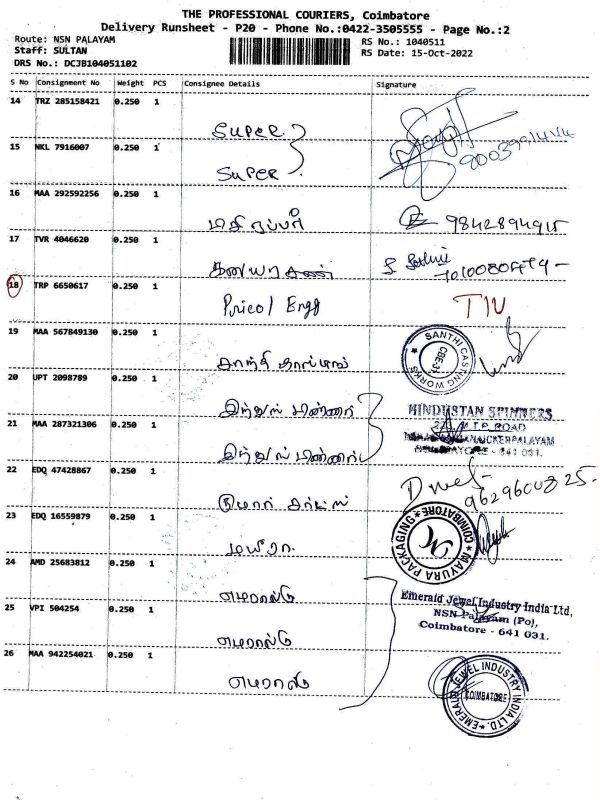 THE PROFESSIONAL COURIERS, Coimbatore
Delivery Runsheet - P20 - Phone No.:0422-3505555 - Page No.:2
Route: NSN PALAYAM RS No.: 1040511
Staff: SULTAN RS Date: 15-Oct-2022
DRS No.: DCJB104051102
S No Consignment No Weight PCS Consignee Details Signature
14 TRZ 285158421 0.250 1 Super
15 NKL 7916007 0.250 1 Super
16 MAA 292592256 0.250 1 9842894915
17 TVR 4046620 0.250 1
18 TRP 6650617 0.250 1 Pricol Engg
19 MAA 567849130 0.250 1 சாந்தி காஸ்டிங்
SANTHI CASTING WORKS
20 UPT 2098789 0.250 1 இந்துஸ் பின்னர்
HINDUSTAN SPINNERS
M.T.P. ROAD
21 MAA 287321306 0.250 1 இந்துஸ் பின்னர்
641 031.
22 EDQ 47428867 0.250 1 9629600825
23 EDQ 16559879 0.250 1 மயூரா
MAYURA PACKAGING COIMBATORE
24 AMD 25683812 0.250 1 எமரால்டு
Emerald Jewel Industry India Ltd,
NSN Palayam (Po),
Coimbatore - 641 031.
25 VPI 504254 0.250 1 எமரால்டு
26 MAA 942254021 0.250 1 எமரால்டு
EMERALD JEWEL INDUSTRY INDIA LTD. COIMBATORE